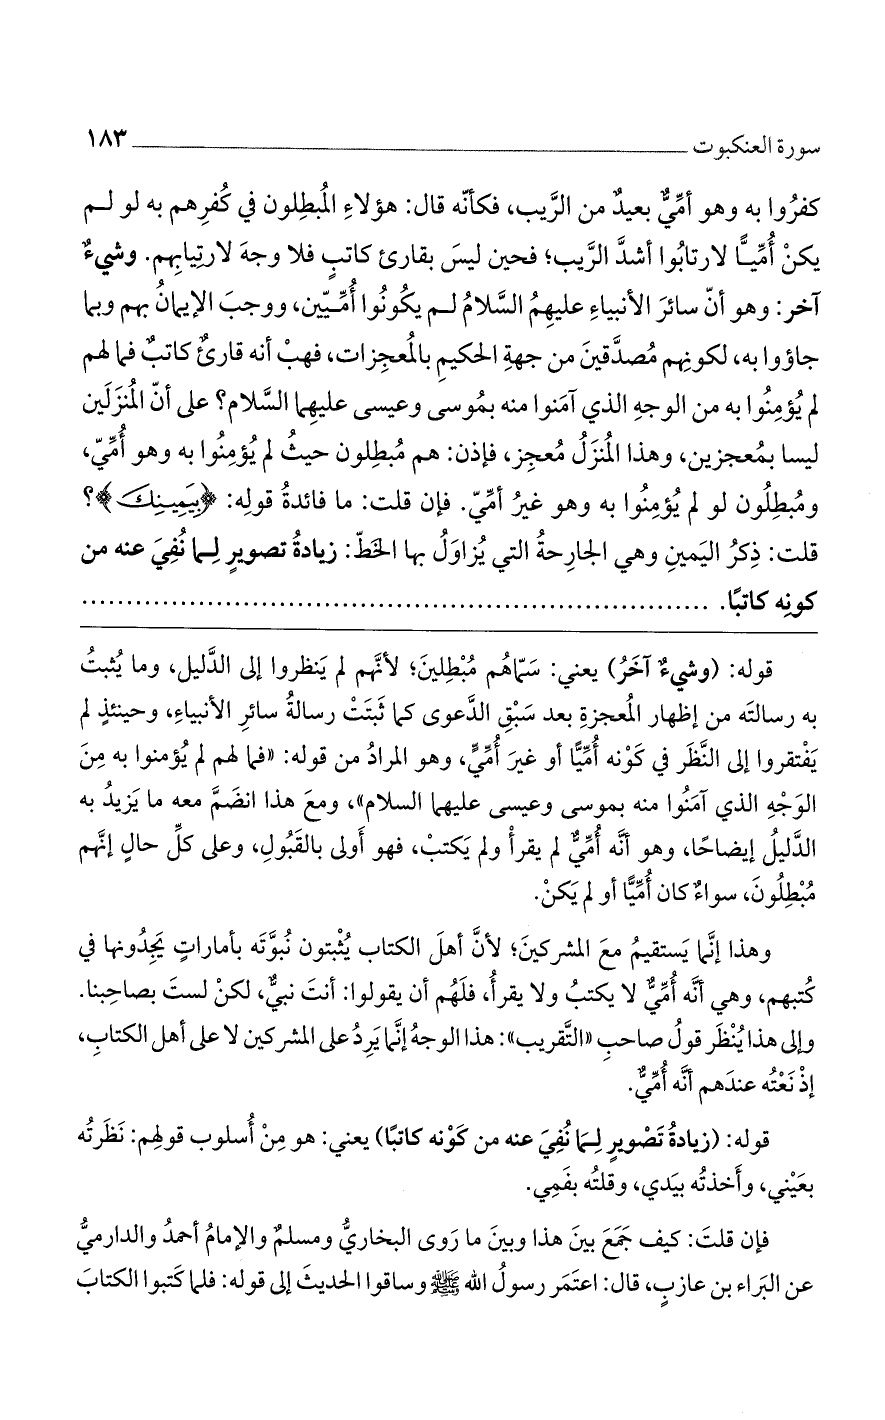 سورة العنكبوت ــــــــــــــــــــــــــــــــــــــــ ١٨٣
كفرُوا به وهو أمِّيٌّ بعيدٌ من الرَّيب، فكأنّه قال: هؤلاءِ المُبطِلون في كُفرِهم به لو لـم
يكنْ أُمِّيـًّا لارتابُوا أشدَّ الرَّيب؛ فحين ليسَ بقارئ كاتبٍ فلا وجهَ لارتِيابِهم. وشيءٌ
آخر: وهو أنّ سائرَ الأنبياءِ عليهِمُ السَّلامُ لـم يكونُوا أُمِّـيّين، ووجبَ الإيمانُ بهم وبما
جاؤوا به، لكونِهم مُصدَّقينَ من جهةِ الحكيمِ بالمُعجِزات، فهبْ أنه قارئٌ كاتبٌ فما لهم
لم يُؤمِنُوا به من الوجهِ الذي آمَنوا منه بمُوسى وعيسى عليهِما السَّلام؟ على أنّ المُنزَلَين
ليسا بمُعجزين، وهذا المُنزَلُ مُعجِز، فإذن: هم مُبطِلون حيثُ لم يُؤمِنُوا به وهو أُمِّيّ،
ومُبطِلُون لو لم يُؤمِنُوا به وهو غيرُ أمِّيّ. فإن قلت: ما فائدةُ قولِه: ﴿بِيَمِينِكَ﴾؟
قلت: ذِكرُ اليَمينِ وهي الجارِحةُ التي يُزاوَلُ بها الخطّ: زيادةُ تصويرٍ لِـما نُفِيَ عنه من
كونِه كاتبًا. ......................................................................
قوله: (وشيءٌ آخَرُ) يعني: سَمّاهُم مُبْطِلينَ؛ لأنَّهم لم يَنظروا إلى الدَّليل، وما يُثبتُ
به رسالتَه من إظهار المُعجزةِ بعد سَبْقِ الدَّعوى كما ثَبتَتْ رسالةُ سائرِ الأنبياءِ، وحينئذٍ لم
يَفْتقروا إلى النَّظَر في كَوْنه أُمِّيًّا أو غيرَ أُمِّيٍّ، وهو المرادُ من قوله: «فما لهم لم يُؤمنوا به مِنَ
الوَجْهِ الذي آمَنُوا منه بموسى وعيسى عليهما السلام»، ومعَ هذا انضَمَّ معه ما يَزيدُ به
الدَّليلُ إيضاحًا، وهو أنَّه أُمِّيٌّ لم يقرأْ ولم يَكتبْ، فهو أَولى بالقَبُولِ، وعلى كلِّ حالٍ إنَّهم
مُبْطِلُونَ، سواءٌ كان أُمِّيًّا أو لم يَكنْ.
وهذا إنَّما يَستقيمُ معَ المشركينَ؛ لأنَّ أهلَ الكتاب يُثْبتون نُبوَّتَه بأماراتٍ يَجِدُونها في
كُتبهم، وهي أنَّه أُمِّيٌّ لا يكتبُ ولا يقرأُ، فلَهُم أن يقولوا: أنتَ نبيٌّ، لكنْ لست بصاحِبنا.
وإلى هذا يُنْظَر قولُ صاحبِ «التَّقريب»: هذا الوجهُ إنَّما يَرِدُ على المشركين لا على أهل الكتابِ،
إذْ نَعْتُه عندَهم أنَّه أُمِّيٌّ.
قوله: (زيادةُ تَصْويرٍ لِـمَا نُفِيَ عنه من كَوْنه كاتبًا) يعني: هو مِنْ أُسلوب قولهم: نَظَرتُه
بعَيْني، وأَخذتُه بيَدي، وقلتُه بفَمِي.
فإن قلتَ: كيف جَمَعَ بينَ هذا وبينَ ما رَوى البخاريُّ ومسلمٌ والإمامُ أحمدُ والدارميُّ
عن البَراء بن عازبٍ، قال: اعتَمَر رسولُ الله ﷺ وساقوا الحديثَ إلى قوله: فلما كَتبوا الكتابَ